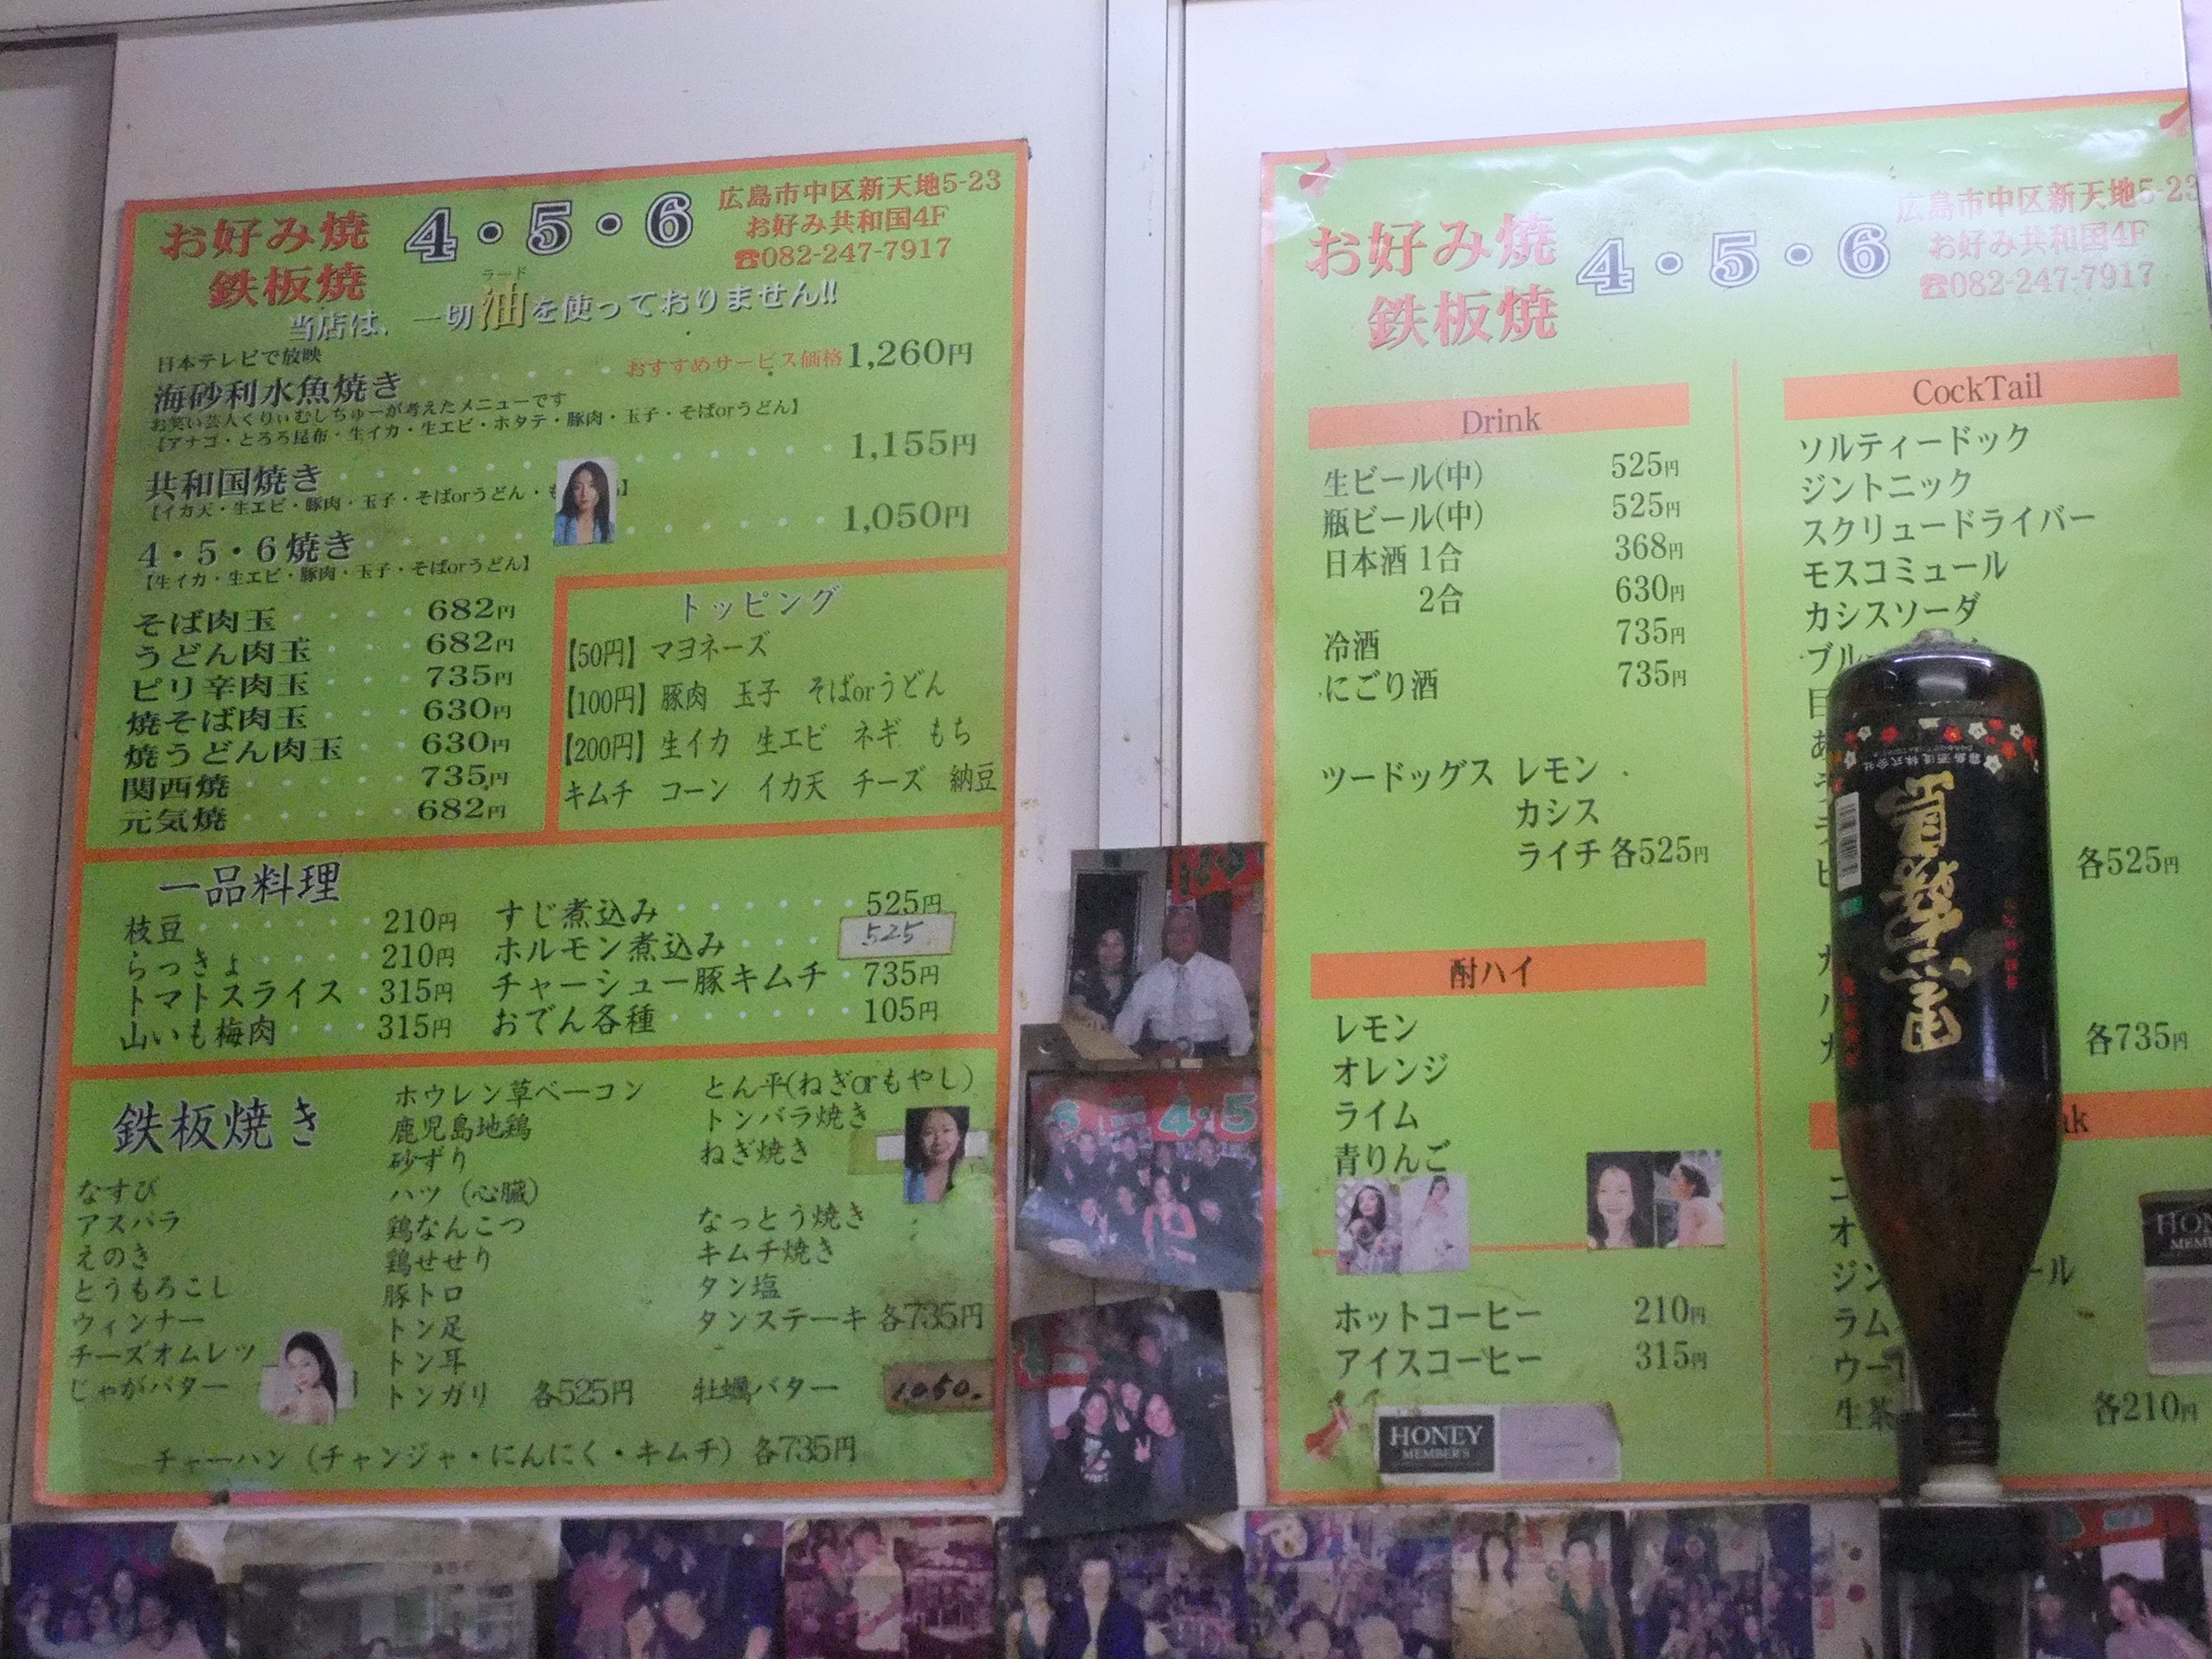 お好み焼
鉄板焼
4・5・6
広島市中区新天地5-23
お好み共和国4F
☎082-247-7917
ラード
当店は、一切油を使っておりません!!
日本テレビで放映
海砂利水魚焼き おすすめサービス価格 1,260円
お笑い芸人くりぃむしちゅーが考えたメニューです
【アナゴ・とろろ昆布・生イカ・生エビ・ホタテ・豚肉・玉子・そばorうどん】
共和国焼き 1,155円
【イカ天・生エビ・豚肉・玉子・そばorうどん・も
4・5・6焼き 1,050円
【生イカ・生エビ・豚肉・玉子・そばorうどん】
そば肉玉 682円
うどん肉玉 682円
ピリ辛肉玉 735円
焼そば肉玉 630円
焼うどん肉玉 630円
関西焼 735円
元気焼 682円
トッピング
【50円】マヨネーズ
【100円】豚肉 玉子 そばorうどん
【200円】生イカ 生エビ ネギ もち
キムチ コーン イカ天 チーズ 納豆
一品料理
枝豆 210円
らっきょ 210円
トマトスライス 315円
山いも梅肉 315円
すじ煮込み 525円
ホルモン煮込み 525
チャーシュー豚キムチ 735円
おでん各種 105円
鉄板焼き
なすび
アスパラ
えのき
とうもろこし
ウィンナー
チーズオムレツ
じゃがバター
ホウレン草ベーコン
鹿児島地鶏
砂ずり
ハツ(心臓)
鶏なんこつ
鶏せせり
豚トロ
トン足
トン耳
トンガリ 各525円
とん平(ねぎorもやし)
トンバラ焼き
ねぎ焼き
なっとう焼き
キムチ焼き
タン塩
タンステーキ 各735円
牡蠣バター 1,050.
チャーハン(チャンジャ・にんにく・キムチ)各735円
お好み焼
鉄板焼
4・5・6
広島市中区新天地5-23
お好み共和国4F
☎082-247-7917
Drink
生ビール(中) 525円
瓶ビール(中) 525円
日本酒 1合 368円
2合 630円
冷酒 735円
にごり酒 735円
ツードッグス レモン
カシス
ライチ 各525円
酎ハイ
レモン
オレンジ
ライム
青りんご
ホットコーヒー 210円
アイスコーヒー 315円
HONEY
MEMBER'S
CockTail
ソルティードック
ジントニック
スクリュードライバー
モスコミュール
カシスソーダ
ブル
各525円
各735円
ジン
ール
ラム
ウー
生茶
各210円
霧島酒造株式会社
4・5